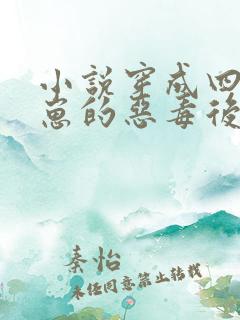 小说穿成四
崽的恶毒後
秦怡
未经同意禁止转载